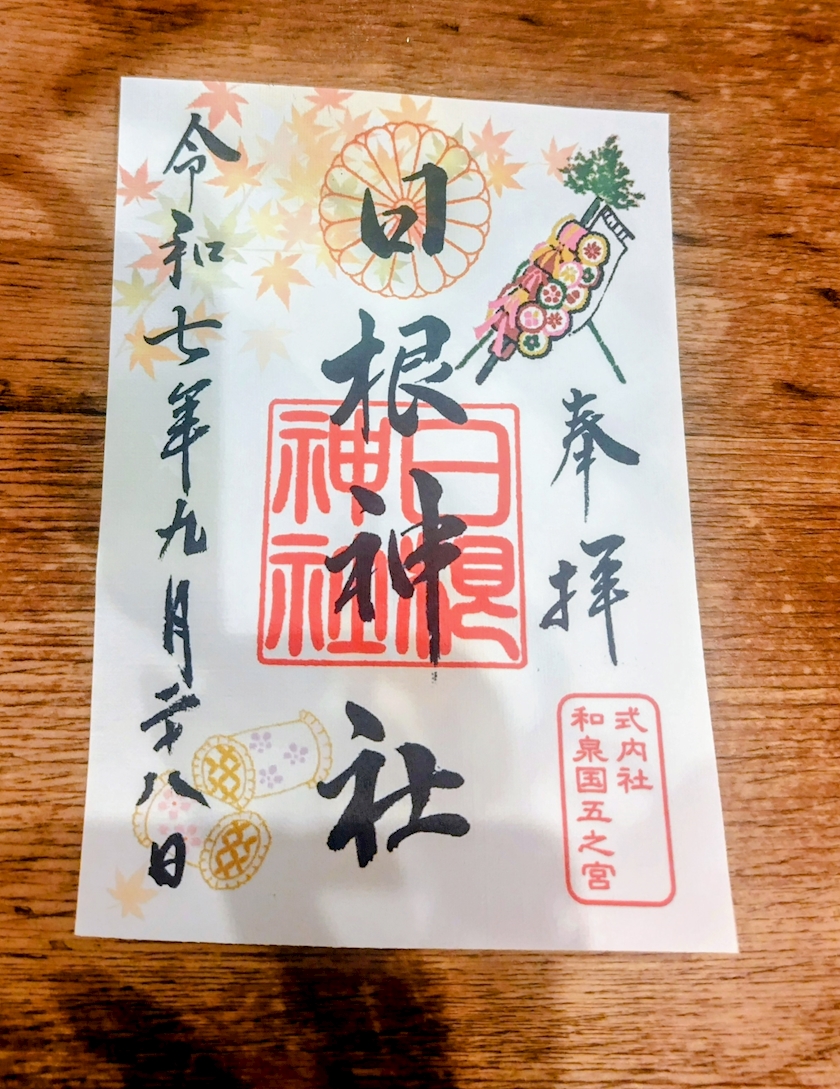 奉拝
式内社
和泉国五之宮
日根神社
日根
神社
令和七年九月二十八日